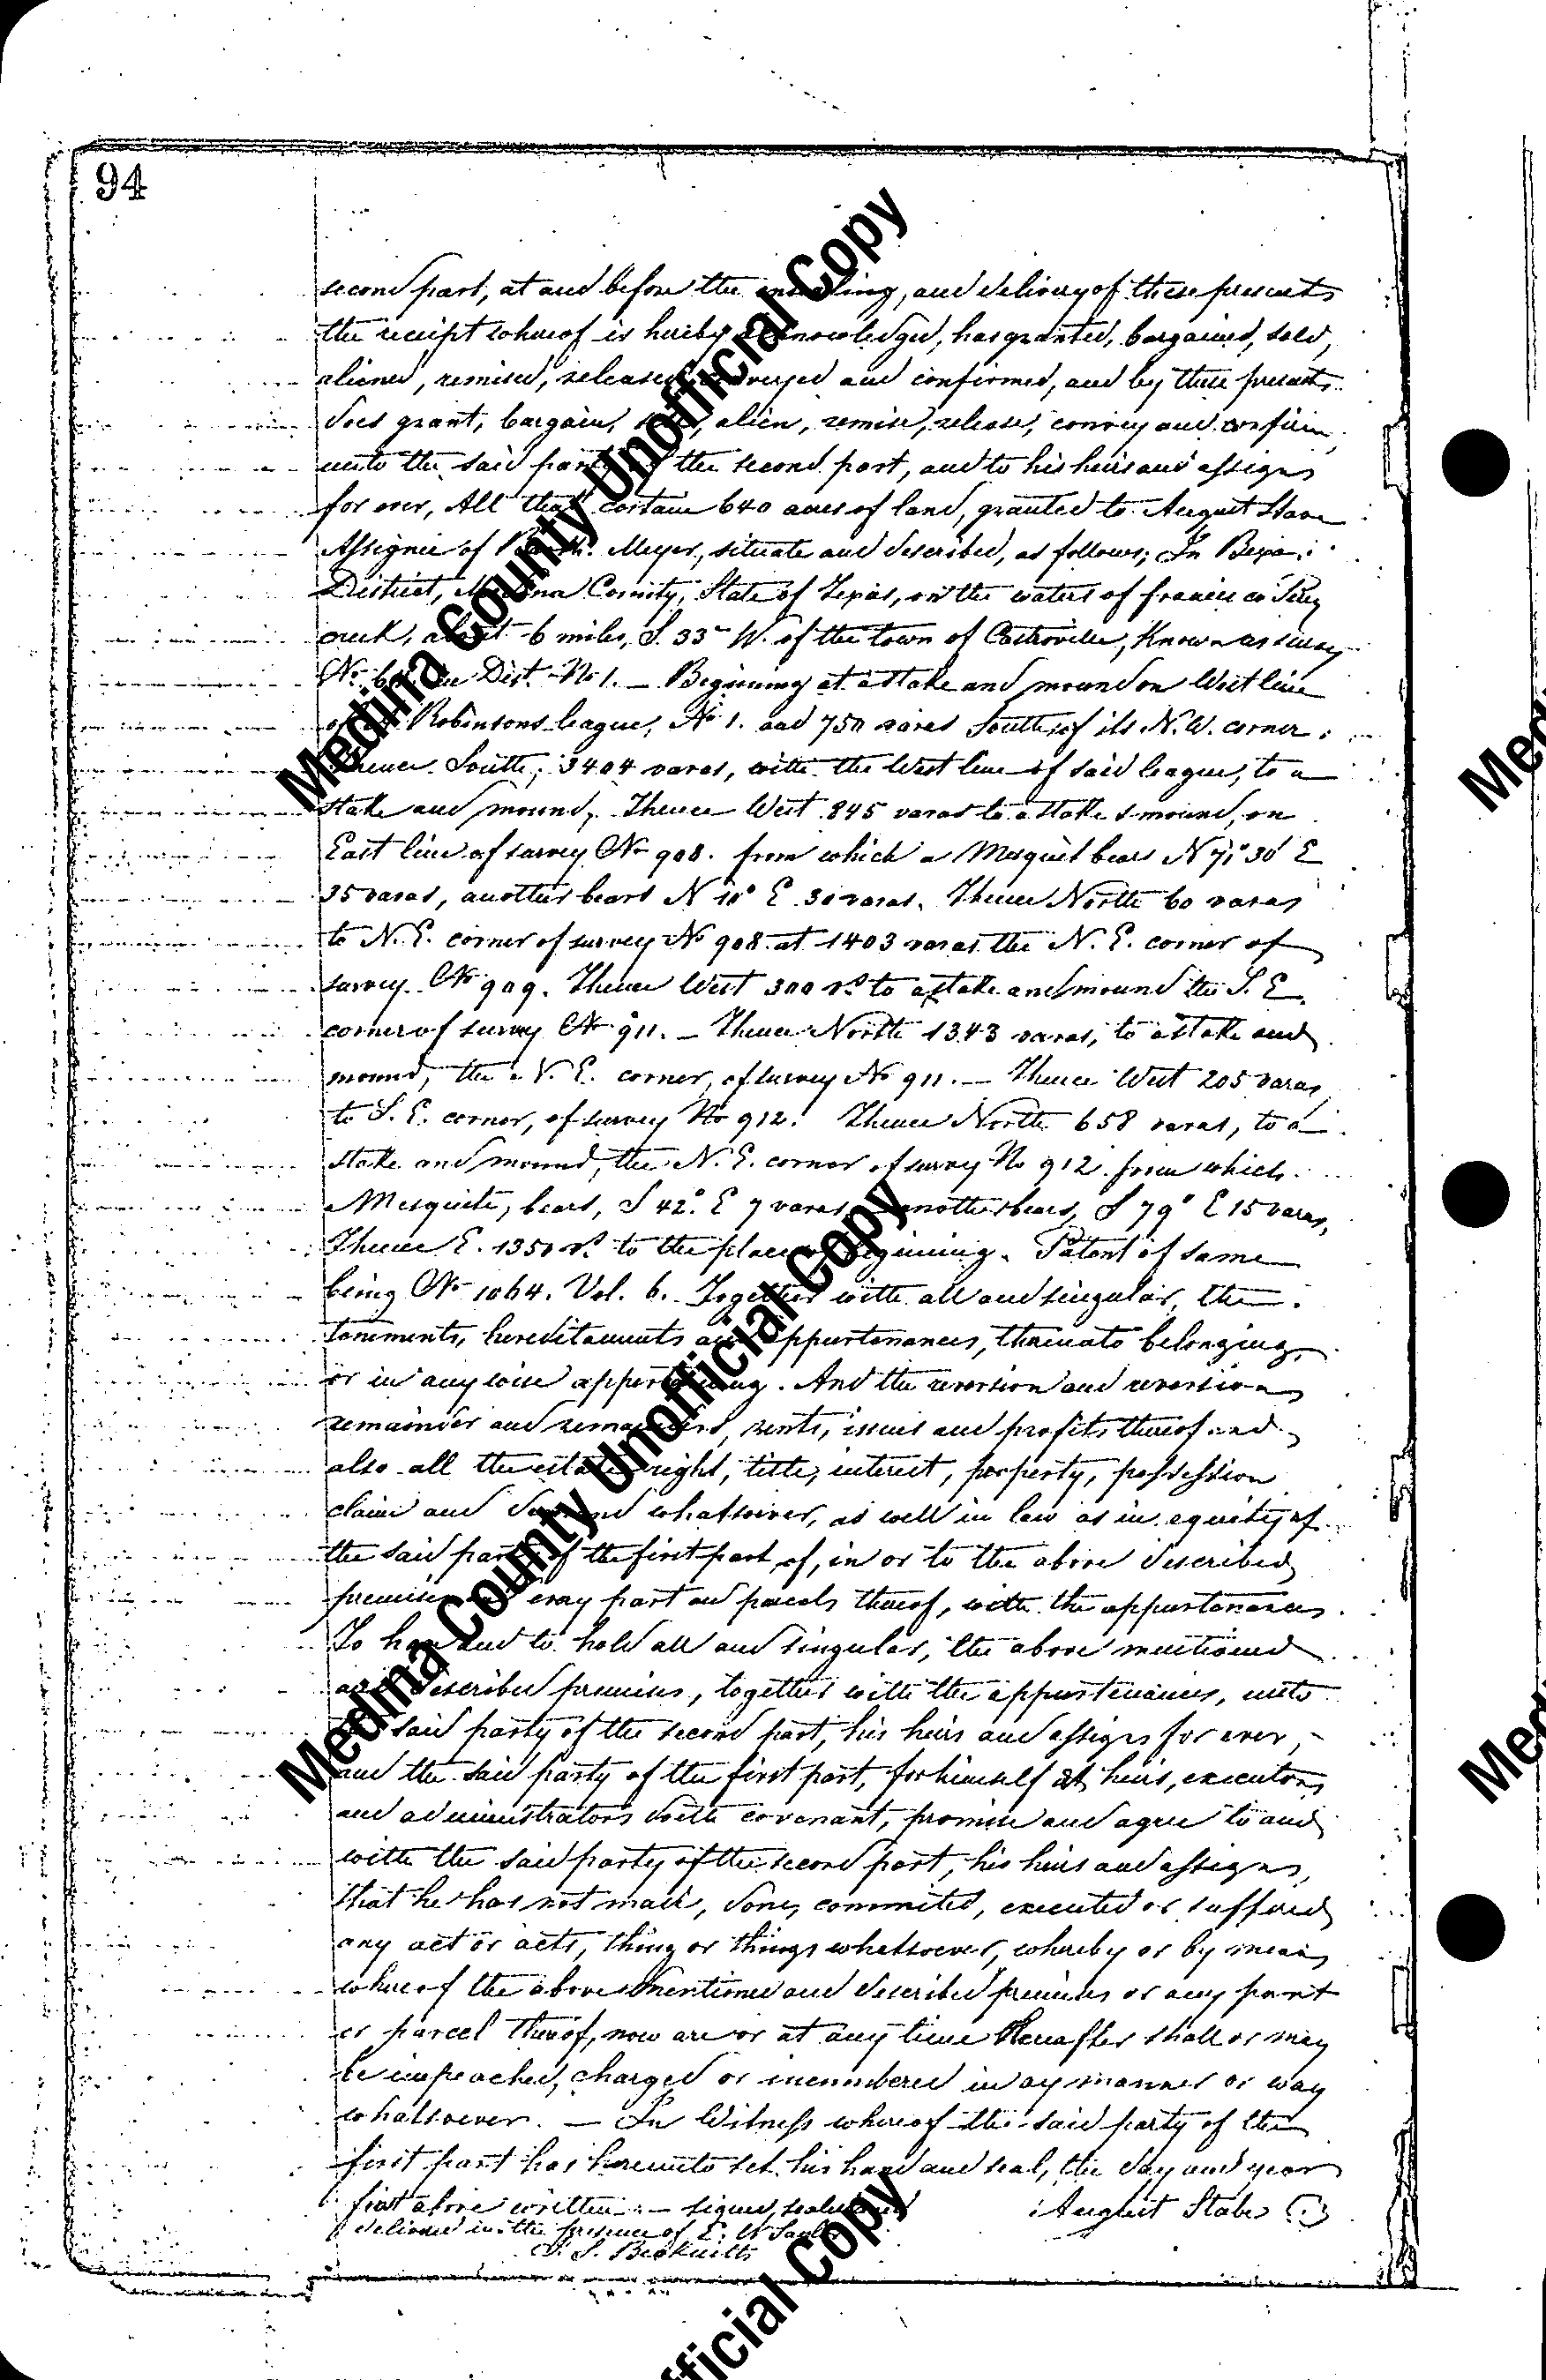 94
second part, at and before the ensealing, and delivery of these presents
the receipt whereof is hereby acknowledged, has granted, bargained, sold,
aliened, remised, released conveyed and confirmed, and by these presents
does grant, bargain, sell, alien, remise, release, convey and confirm
unto the said party of the second part, and to his heirs and assigns
for ever, All that certain 640 acres of land, granted to August
Assignee of Meyer, situate and described, as follows; In Bexar
District, Medina County, State of Texas, on the waters of Francisco Perez
creek, about 6 miles, S. 33° W. of the town of Castroville, Known as survey
No. Dist. No 1. — Beginning at a stake and mound on West line
of Robinsons league, No 1. and 750 varas South of its N.W. corner.
Thence South, 3404 varas, with the West line of said league, to a
stake and mound, Thence West 845 varas to a stake & mound, on
East line of survey No 908. from which a Mesquit bears N 71° 30' E
35 varas, another bears N 10° E 30 varas. Thence North 60 varas
to N.E. corner of survey No 908. at 1403 varas the N.E. corner of
survey No 909. Thence West 300 vs to a stake and mound the S.E.
corner of survey No 911. — Thence North 1343 varas, to a stake and
mound, the N.E. corner, of survey No 911. — Thence West 205 varas
to S.E. corner, of survey No 912. Thence North 658 varas, to a
stake and mound, the N.E. corner of survey No 912. from which
a Mesquite, bears, S 42° E 7 varas another bears, S 79° E 15 varas,
Thence E. 1350 vs to the place of beginning. Patent of same
being No 1064. Vol. 6. Together with all and singular, the
tenements, hereditaments and appurtenances, thereunto belonging,
or in any wise appertaining. And the reversion and reversions
remainder and remainders, rents, issues and profits thereof and
also all the estate right, title, interest, property, possession
claim and demand whatsoever, as well in law as in equity of
the said party of the first part of, in or to the above described
premises and every part and parcels thereof, with the appurtenances
To have and to hold all and singular, the above mentioned
and described premises, together with the appurtenances, unto
the said party of the second part, his heirs and assigns for ever,
and the said party of the first part, for himself heirs, executors
and administrators doth covenant, promise and agree to and
with the said party of the second part, his heirs and assigns,
that he has not made, done, commited, executed or suffered
any act or acts, thing or things whatsoever, whereby or by means
whereof the above mentioned and described premises or any part
or parcel thereof, now are or at any time hereafter shall or may
be impeached, charged or incumbered in any manner or way
whatsoever. — In Witness whereof the said party of the
first part has hereunto set his hand and seal, the day and year
first above written. — signed, sealed and August
delivered in the presence of E.
Medina County Unofficial Copy
Medina County Unofficial Copy